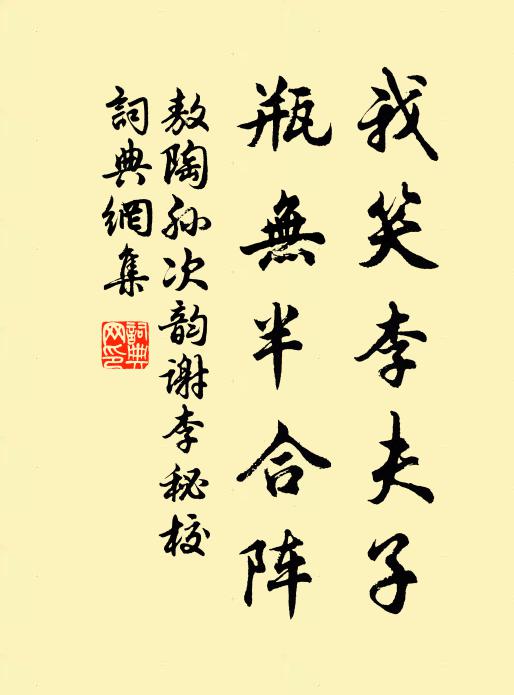 我笑李夫子
瓶無半合阵
敖陶孙次韵谢李秘校
詞典網集
詞典网印